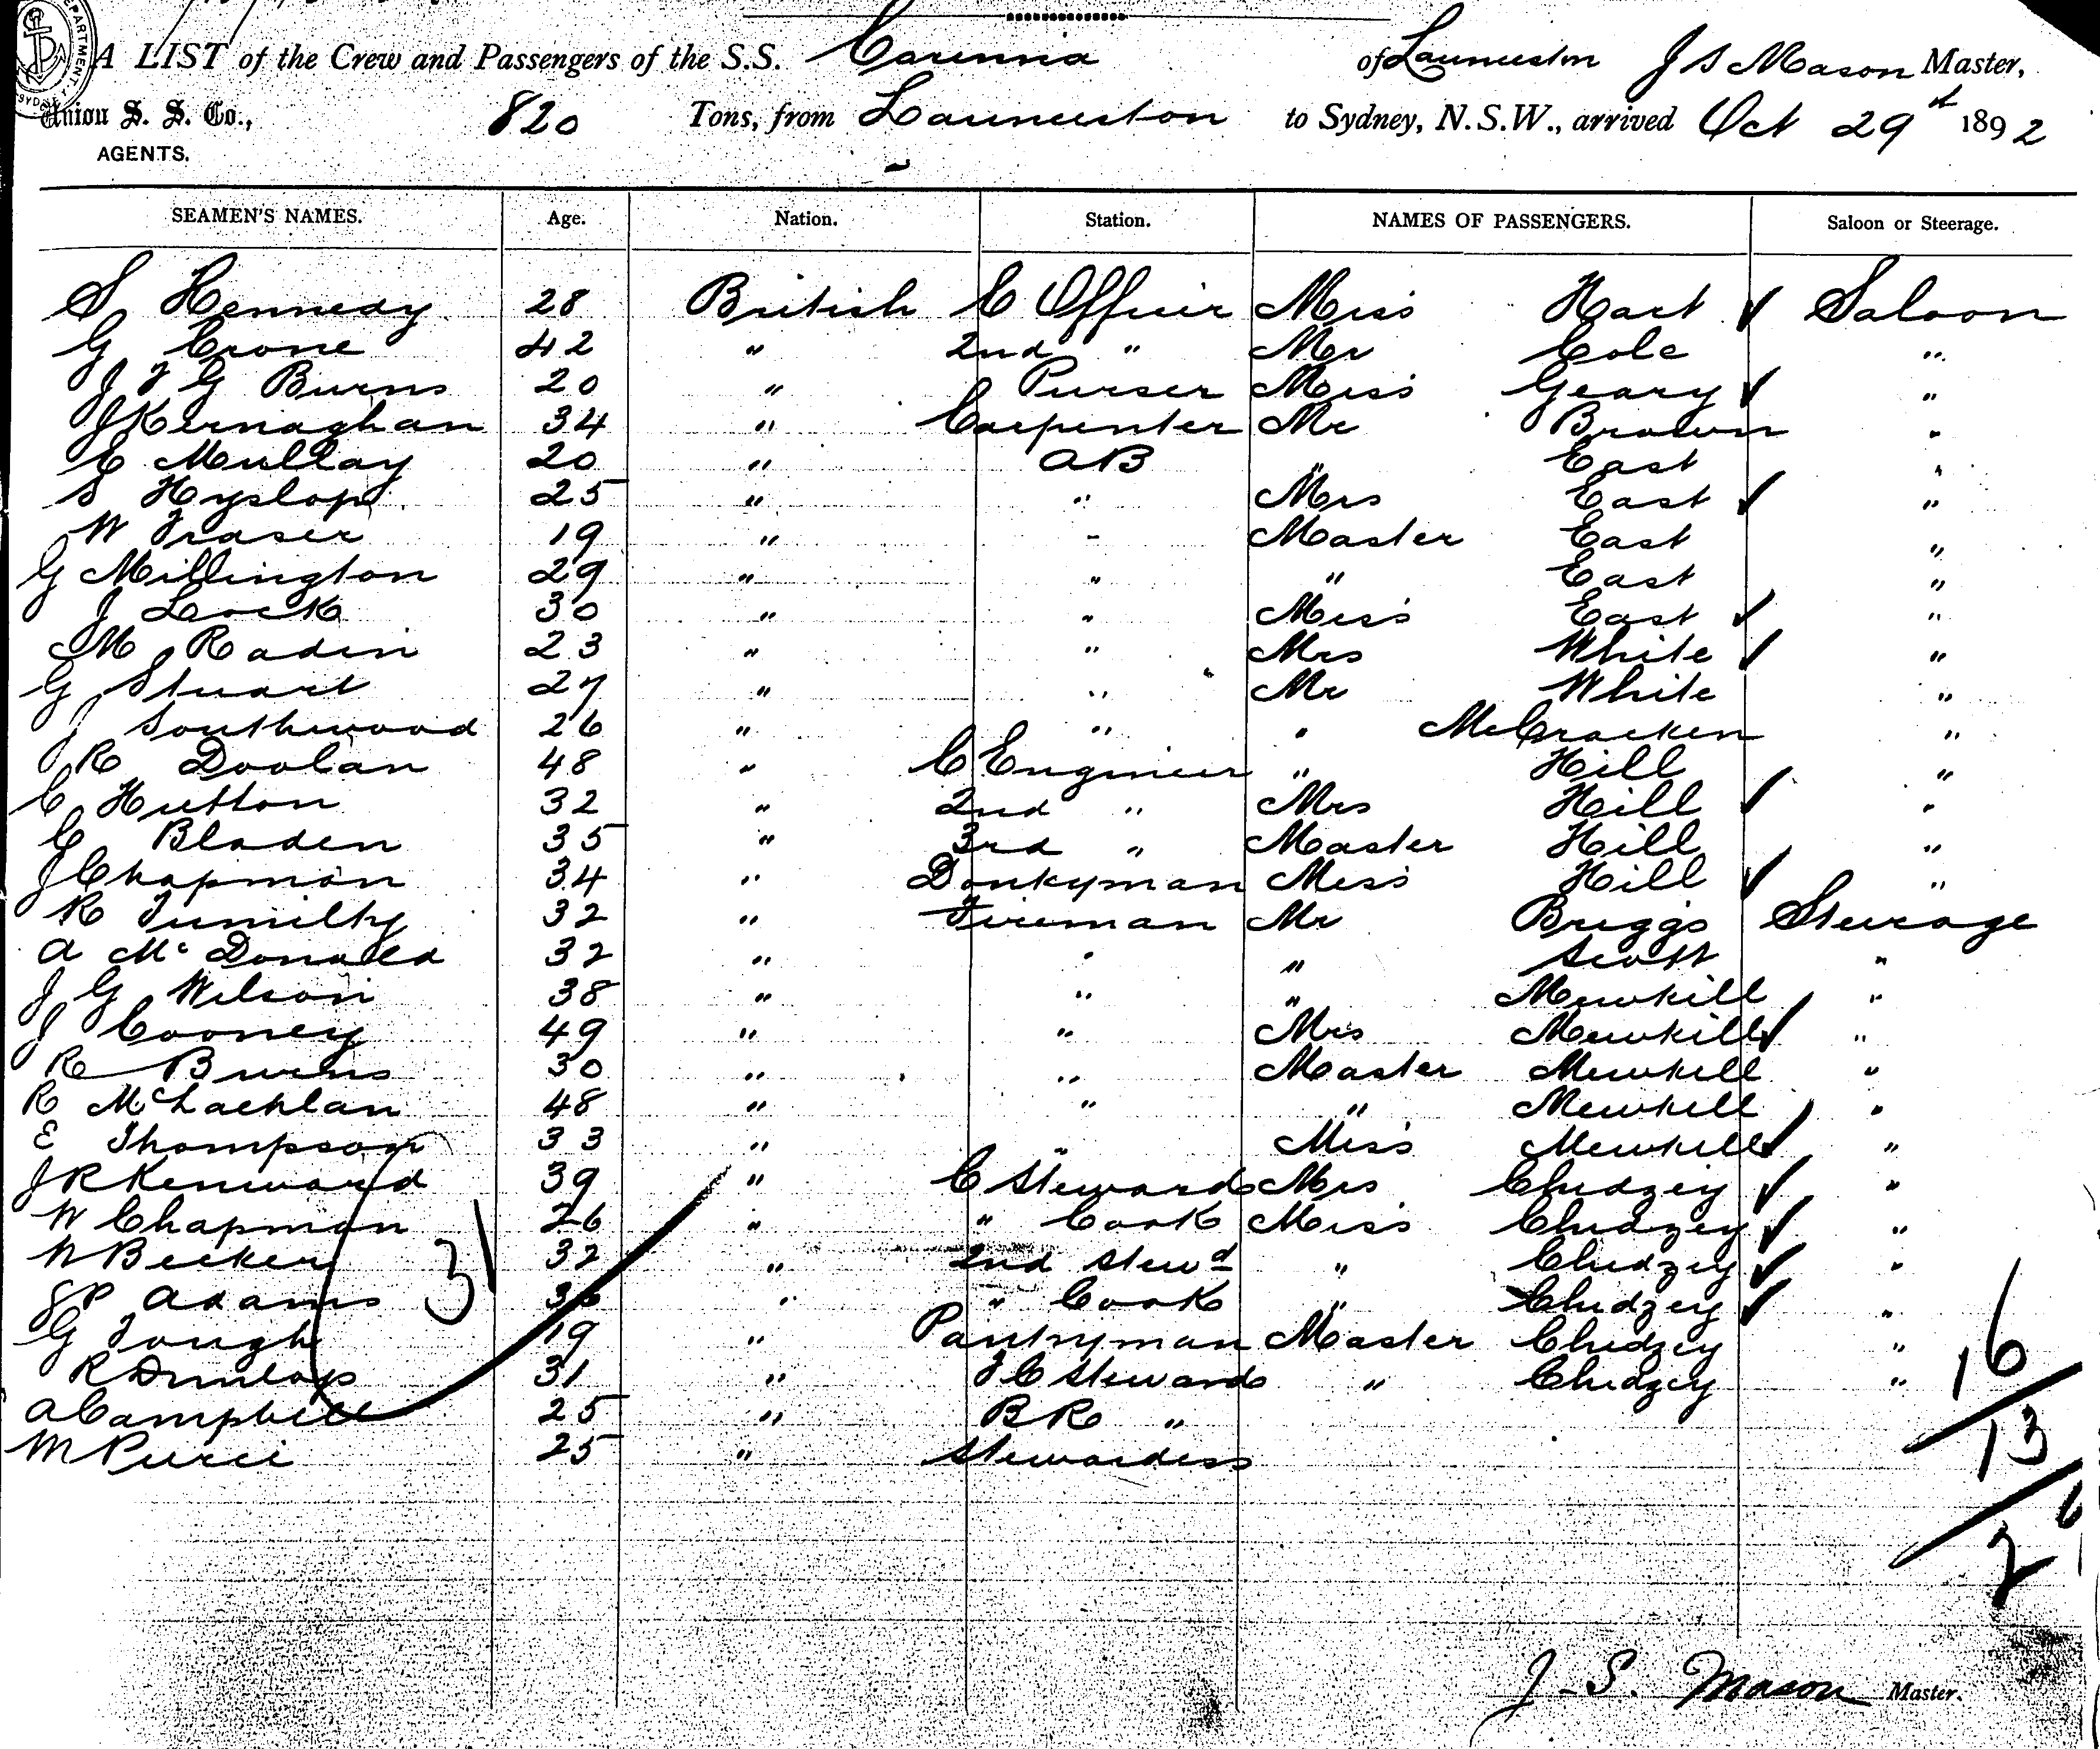 A LIST of the Crew and Passengers of the S.S. Corinna of Launceston J S Mason Master,
Union S. S. Co., 820 Tons, from Launceston to Sydney, N.S.W., arrived Oct 29st 1892
AGENTS.
SEAMEN'S NAMES. Age. Nation. Station. NAMES OF PASSENGERS. Saloon or Steerage.
S Kennedy 28 British C Officer Miss Hart ✓ Saloon
G Crone 42 " 2nd " Mr Cole "
J F G Burns 20 " Purser Miss Geary ✓ "
J Kernaghan 34 " Carpenter Mr Brown "
E Mullay 20 " AB " East "
S Hyslop 25 " " Mrs East ✓ "
W Fraser 19 " " Master East "
G Millington 29 " " " East "
J Lock 30 " " Miss East ✓ "
M Radin 23 " " Mrs White ✓ "
G Stuart 27 " " Mr White "
J Southwood 26 " " " McCracken "
R Doolan 48 " C Engineer " Hill "
C Hutton 32 " 2nd " Mrs Hill ✓ "
C Bladen 35 " 3rd " Master Hill "
J Chapman 34 " Donkyman Miss Hill ✓ "
R Tumilty 32 " Fireman Mr Briggs Steerage
A McDonald 32 " " " Scott "
J G Wilson 38 " " " Mewkill "
J Cooney 49 " " Mrs Mewkill ✓ "
R Burns 30 " " Master Mewkill "
R McLachlan 48 " " " Mewkill "
E Thompson 33 " " Miss Mewkill ✓ "
J R Kenward 39 " C Steward Mrs Chidzey ✓ "
W Chapman 26 " " Cook Miss Chidzey ✓ "
W Becker 32 " 2nd Stewd " Chidzey ✓ "
P Adams 36 " " Cook " Chidzey ✓ "
G Tough 19 " Pantryman Master Chidzey "
R Dunlop 31 " F C Steward " Chidzey "
A Campbell 25 " B R "
M Purci 25 " Stewardess
31
16
13
J. S. Mason Master.